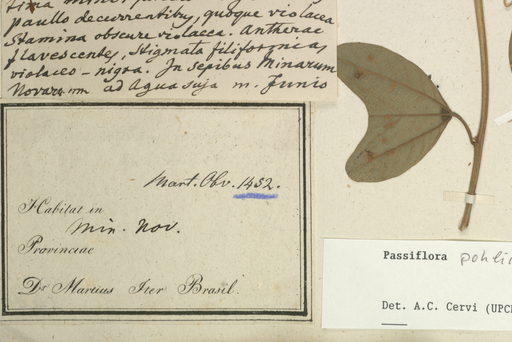 paullo decurrentibus, quoque violacea
Stamina obscure violacea. Antherae
flavescentes, stigmata filiformea
violaceo-nigra. In sepibus Minarum
Novarum ad Agua suja m. Junio
Mart. Obv. 1452.
Habitat in
Min. Nov.
Provinciae
Dr Martius Iter Brasil.
Passiflora
Det. A.C. Cervi